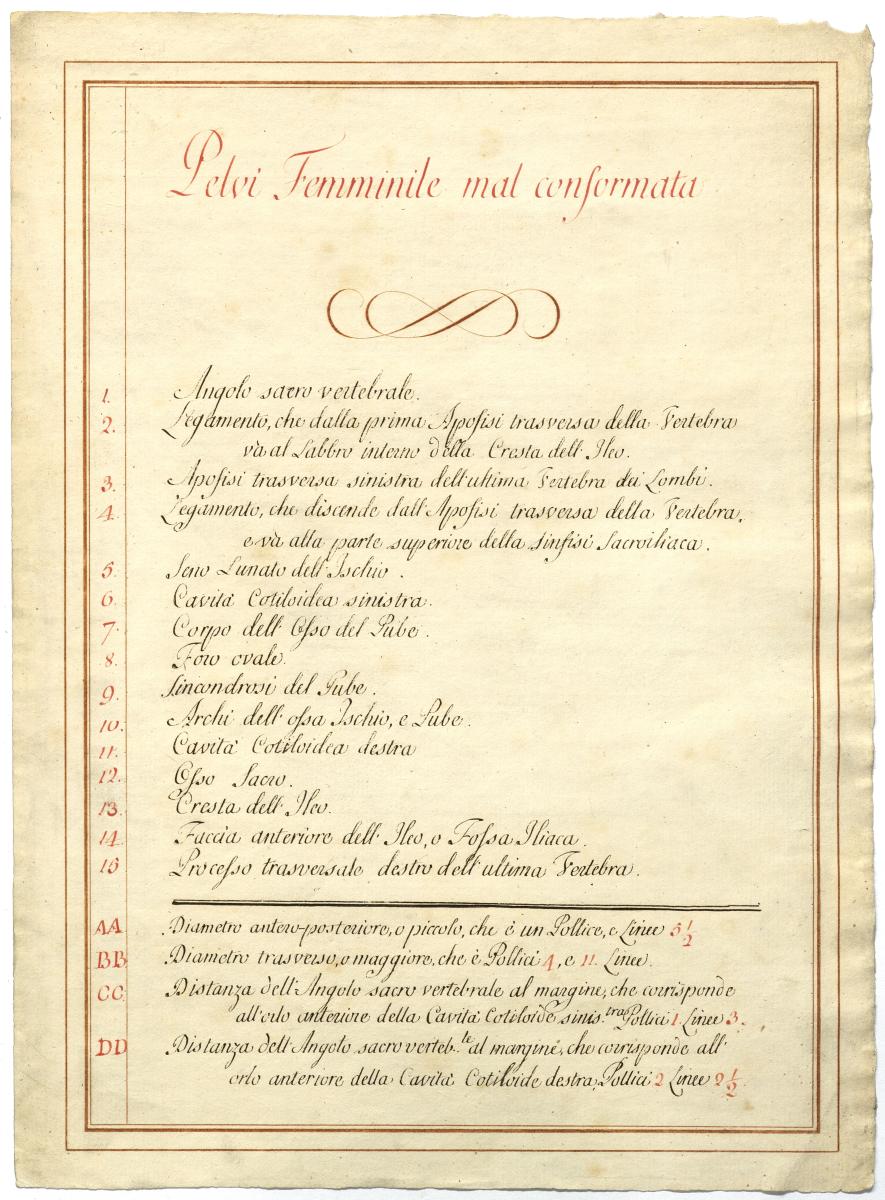 Pelvi Femminile mal conformata
1. Angolo sacro vertebrale.
2. Legamento, che dalla prima Apofisi trasversa della Vertebra
và al Labbro interno della Cresta dell'Ileo.
3. Apofisi trasversa sinistra dell'ultima Vertebra dei Lombi.
4. Legamento, che discende dall'Apofisi trasversa della Vertebra,
e và alla parte superiore della Sinfisi Sacroiliaca.
5. Seno Lunato dell'Ischio.
6. Cavità Cotiloidea sinistra.
7. Corpo dell'Osso del Pube.
8. Foro ovale.
9. Sincondrosi del Pube.
10. Archi dell'ossa Ischio, e Pube.
11. Cavità Cotiloidea destra
12. Osso Sacro.
13. Cresta dell'Ileo.
14. Faccia anteriore dell'Ileo, o Fossa Iliaca.
15 Processo trasversale destro dell'ultima Vertebra.
AA Diametro antero-posteriore, o piccolo, che è un Pollice, e Linee 5 1/2
BB Diametro trasverso, o maggiore, che è Pollici 4, e 11. Linee.
CC Distanza dell'Angolo sacro vertebrale al margine, che corrisponde
all'orlo anteriore della Cavità Cotiloide sinis.tra Pollici 1. Linee 3.
DD Distanza dell'Angolo sacro verteb.le al margine, che corrisponde all'
orlo anteriore della Cavità Cotiloide destra, Pollici 2 Linee 2 1/2.